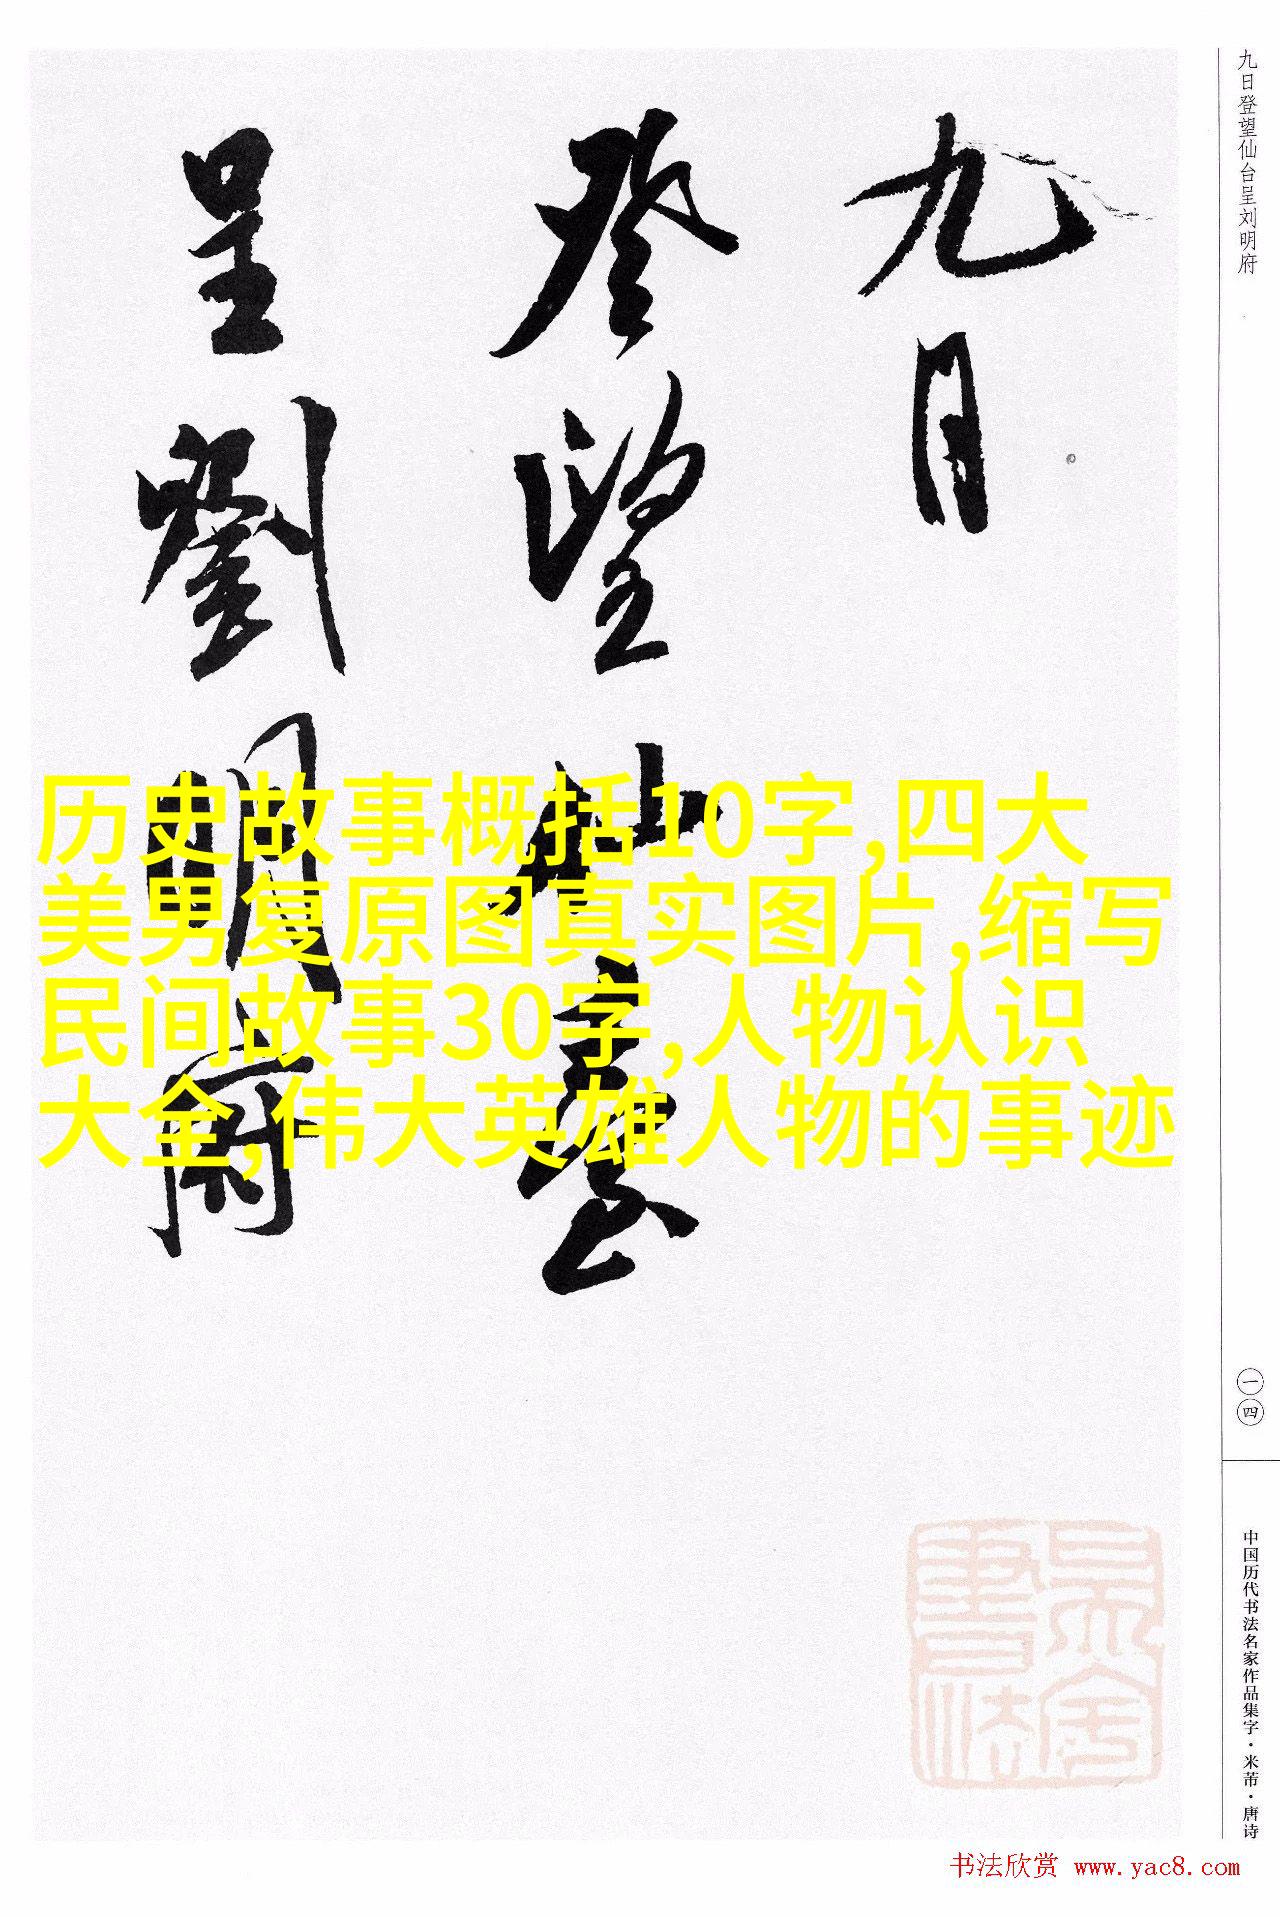 九日
登望仙臺
呈劉明府
历史故事概括10字,四大
美男复原图真实图片,缩写
民间故事30字,人物认识
大全,伟大英雄人物的事迹
九日登望仙台呈刘明府
一四
中国历代书法名家作品集字·米芾·唐诗
书法欣赏 www.yac8.com